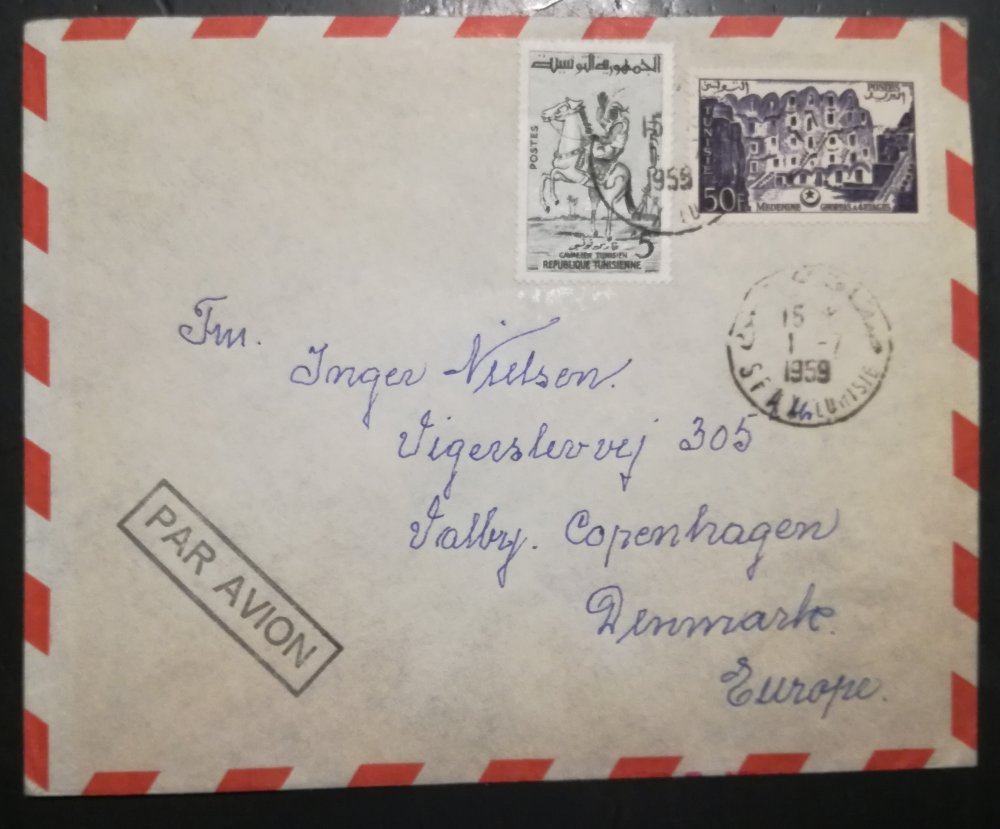 الجمهورية التونسية
POSTES
البريد
فارس تونسي
5
CAVALIER TUNISIEN
REPUBLIQUE TUNISIENNE
التونسي
POSTES
البريد
TUNISIE
50F
MEDENINE GHORFAS à 6 ETAGES
1959
TU
15
1 -7
1959
SFAX TUNISIE
Fru.
Inger Nielsen.
Vigerslevvej 305
Valby. Copenhagen
Denmark.
Europe.
PAR AVION